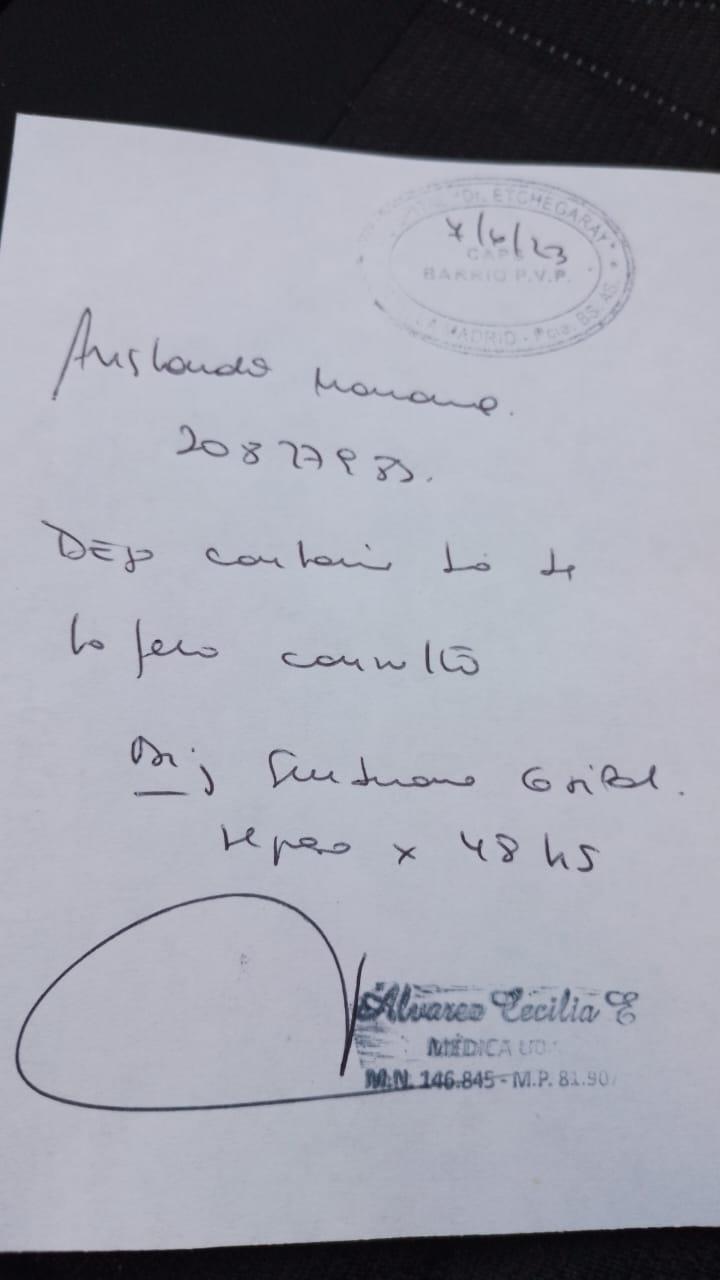 Dr. ETCHEGARAY
7/6/23
CAPS
BARRIO P.V.P.
LA MADRID - Pcia. BS. AS.
Aristondo Mariano.
20877983.
DEJO constancia de
la fecha consultó
Dx: Sindrome Gripal.
reposo x 48 hs
Alvarez Cecilia E
MÉDICA
M.N. 146.845 - M.P. 81.90